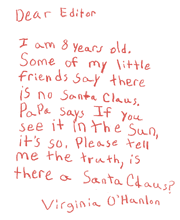 Dear Editor
I am 8 years old.
Some of my little
friends say there
is no Santa Claus.
Papa says If you
see it in the Sun,
it's so. Please tell
me the truth, is
there a Santa Claus?
Virginia O'Hanlon